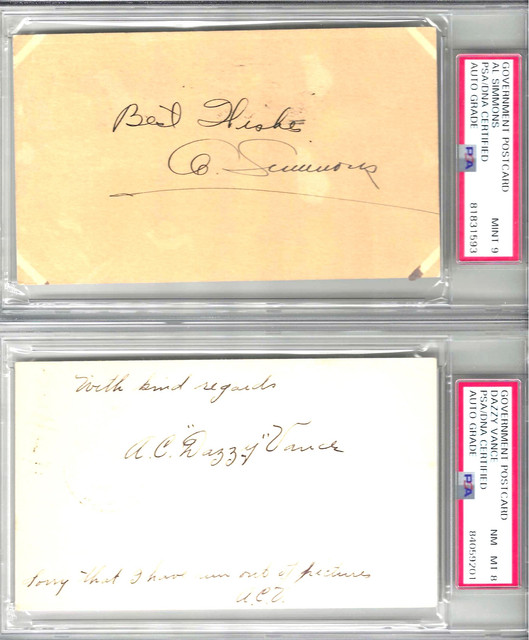 Best Wishes
Al. Simmons
GOVERNMENT POSTCARD
AL SIMMONS
PSA/DNA CERTIFIED
AUTO GRADE
MINT 9
81831593
PSA
With kind regards
A.C. "Dazzy" Vance
Sorry that I have run out of pictures
A.C.V.
GOVERNMENT POSTCARD
DAZZY VANCE
PSA/DNA CERTIFIED
AUTO GRADE
NM MT 8
84059201
PSA